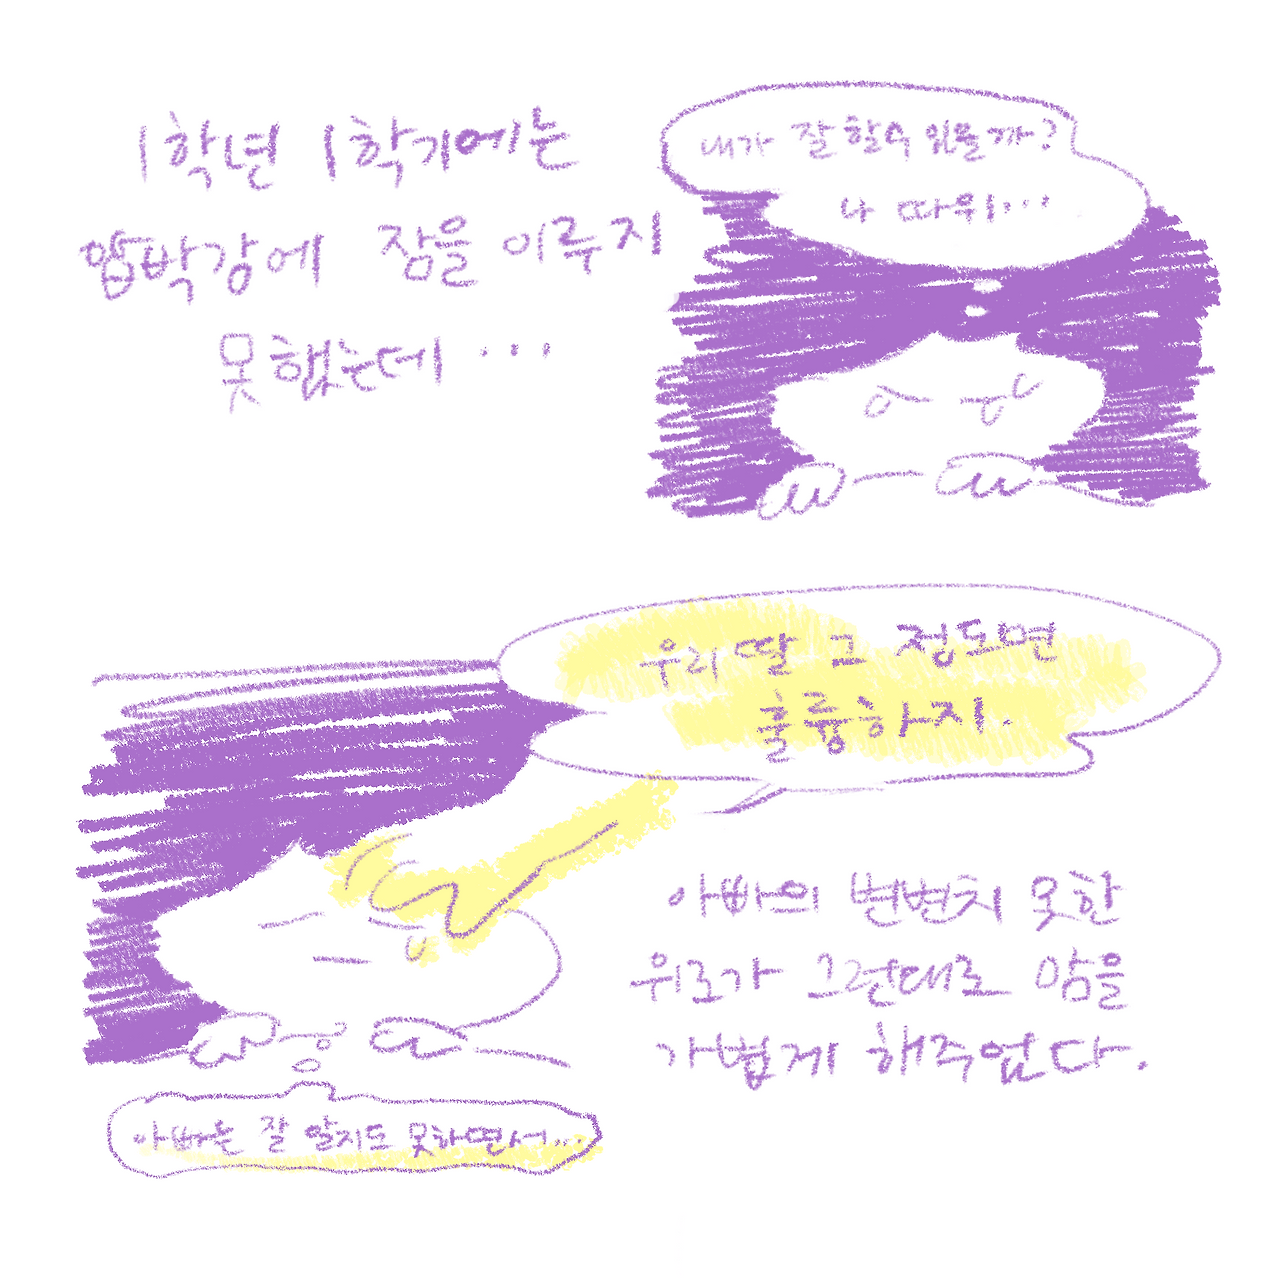 1학년 1학기에는
압박감에 잠을 이루지
못했는데...
내가 잘 할 수 있을까?
나 따위...
우리 딸 그 정도면
훌륭하지.
아빠의 변변치 못한
위로가 그런대로 맘을
가볍게 해주었다.
아빠는 잘 알지도 못하면서...